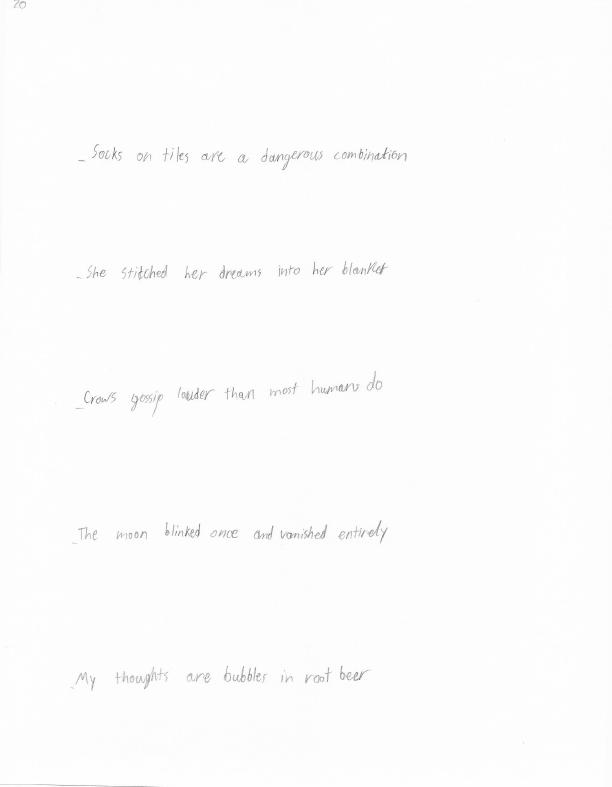 20
_ Socks on tiles are a dangerous combination
_ She stitched her dreams into her blanket
_ Crows gossip louder than most humans do
_ The moon blinked once and vanished entirely
_ My thoughts are bubbles in root beer